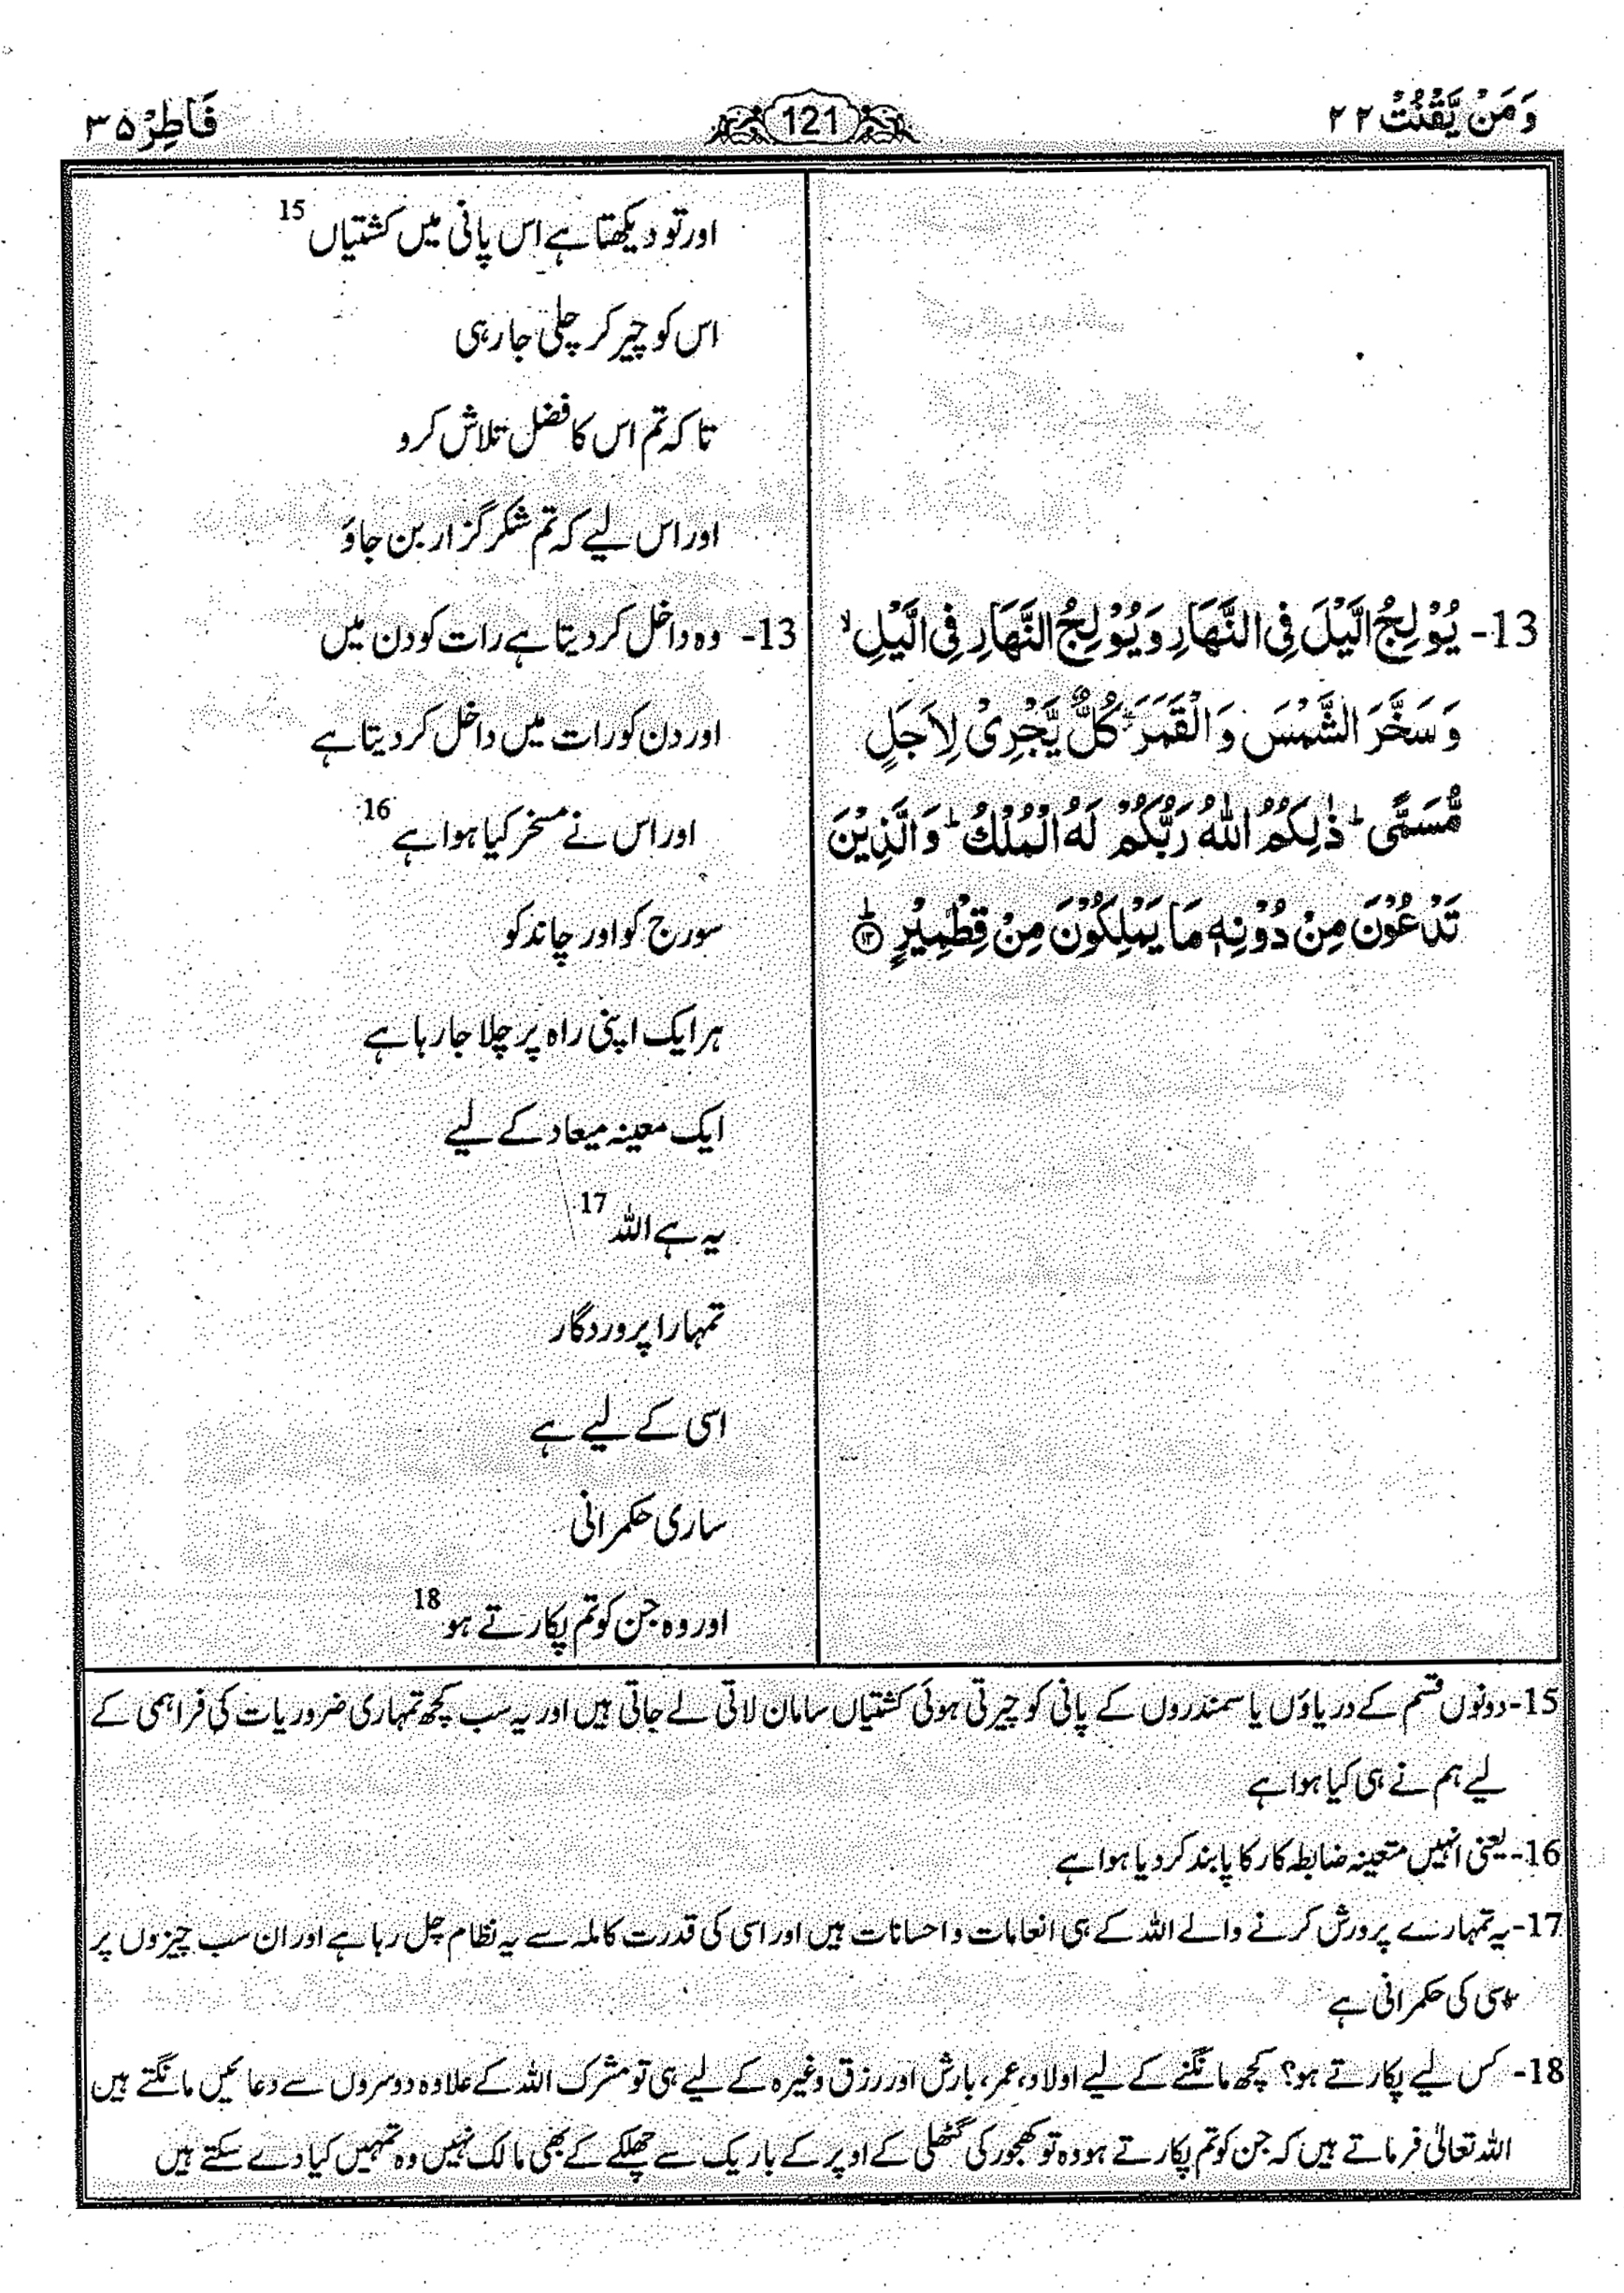 وَمَنْ يَّقْنُتْ ۲۲
121
فَاطِرْ ۳۵
13- يُوْلِجُ الَّيْلَ فِى النَّهَارِ وَيُوْلِجُ النَّهَارَ فِى الَّيْلِ ۙ
وَسَخَّرَ الشَّمْسَ وَالْقَمَرَ ۖ كُلٌّ يَّجْرِىْ لِاَجَلٍ
مُّسَمًّى ؕ ذٰلِكُمُ اللّٰهُ رَبُّكُمْ لَهُ الْمُلْكُ ؕ وَالَّذِيْنَ
تَدْعُوْنَ مِنْ دُوْنِهٖ مَا يَمْلِكُوْنَ مِنْ قِطْمِيْرٍ ؕ ۱۳
اور تو دیکھتا ہے اس پانی میں کشتیاں 15
اس کو چیر کر چلی جا رہی
تا کہ تم اس کا فضل تلاش کرو
اور اس لیے کہ تم شکر گزار بن جاؤ
13- وہ داخل کر دیتا ہے رات کو دن میں
اور دن کو رات میں داخل کر دیتا ہے
اور اس نے مسخر کیا ہوا ہے 16
سورج کو اور چاند کو
ہر ایک اپنی راہ پر چلا جا رہا ہے
ایک معینہ میعاد کے لیے
یہ ہے اللہ 17
تمہارا پروردگار
اسی کے لیے ہے
ساری حکمرانی
اور وہ جن کو تم پکارتے ہو 18
15- دونوں قسم کے دریاؤں یا سمندروں کے پانی کو چیرتی ہوئی کشتیاں سامان لاتی لے جاتی ہیں اور یہ سب کچھ تمہاری ضروریات کی فراہمی کے
لیے ہم نے ہی کیا ہوا ہے
16- یعنی انہیں متعینہ ضابطہ کار کا پابند کر دیا ہوا ہے
17- یہ تمہارے پرورش کرنے والے اللہ کے ہی انعامات و احسانات ہیں اور اسی کی قدرت کاملہ سے یہ نظام چل رہا ہے اور ان سب چیزوں پر
اسی کی حکمرانی ہے
18- کس لیے پکارتے ہو؟ کچھ مانگنے کے لیے اولاد، عمر، بارش اور رزق وغیرہ کے لیے ہی تو مشرک اللہ کے علاوہ دوسروں سے دعائیں مانگتے ہیں
اللہ تعالیٰ فرماتے ہیں کہ جن کو تم پکارتے ہو وہ تو کھجور کی گٹھلی کے اوپر کے باریک سے چھلکے کے بھی مالک نہیں وہ تمہیں کیا دے سکتے ہیں